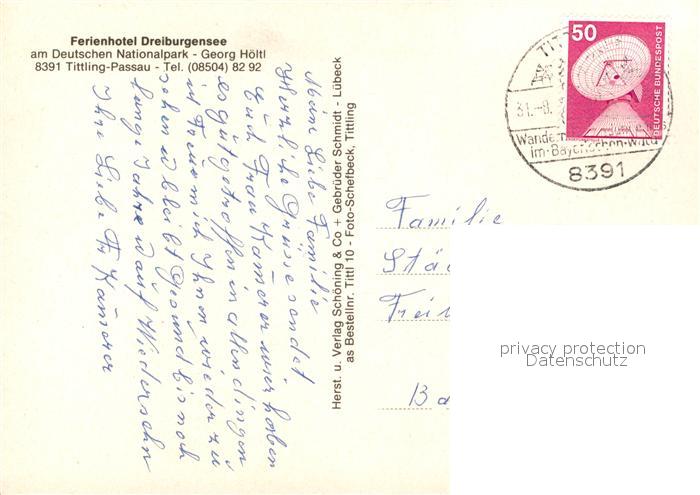 Ferienhotel Dreiburgensee
am Deutschen Nationalpark - Georg Höltl
8391 Tittling-Passau - Tel. (08504) 82 92
Mein Liebe Familie
Herzliche Grüsse sendet
Euch Frau Kamerer wier haben
es gut getroffen in allen dingen
ich Freue mich Ihnen wieder zu
sehen u bleibt Gesund bis noch
lange Jahre u auf Wiedersehn
Ihre Liebe Fr Kamerer
Herst. u. Verlag Schöning & Co + Gebrüder Schmidt - Lübeck
as Bestellnr. Tittl 10 - Foto-Schefbeck, Tittling
50
DEUTSCHE BUNDESPOST
TITT
31.-8.
Wander
im Bayerischen Wald
8391
Familie
Stä
Frei
Ba
privacy protection
Datenschutz